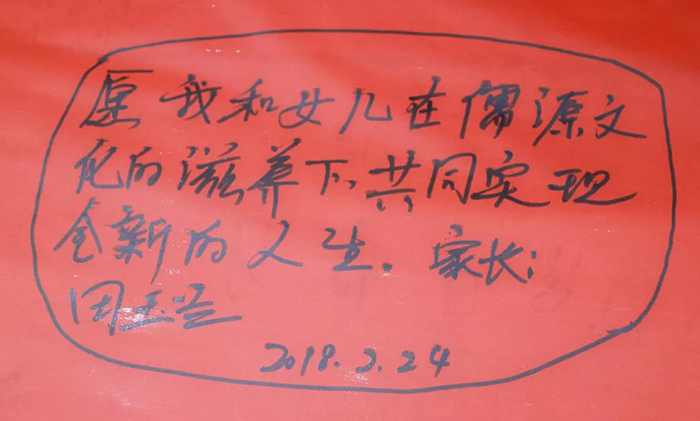 愿我和女儿在儒源文
化的滋养下,共同实现
全新的人生。家长:
田玉兰
2018.2.24